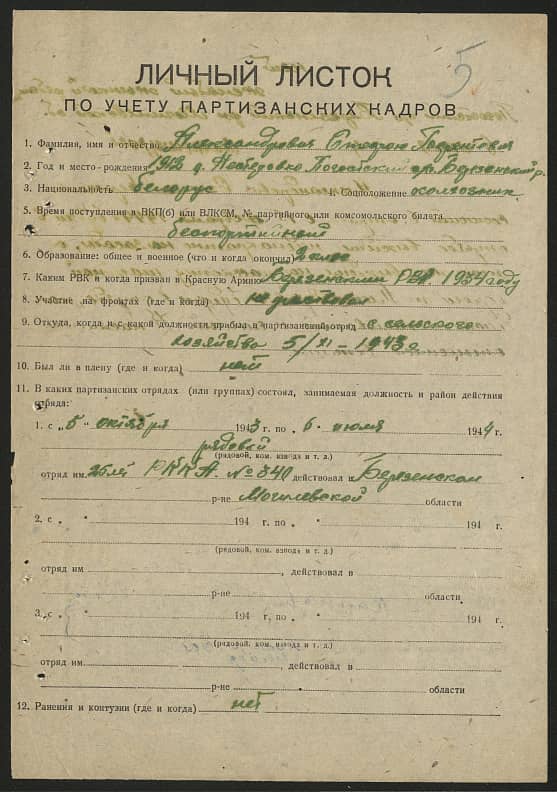 5
ЛИЧНЫЙ ЛИСТОК
ПО УЧЕТУ ПАРТИЗАНСКИХ КАДРОВ
1. Фамилия, имя и отчество Александрович
2. Год и место рождения 1912 д. Березенский р.
3. Национальность белорус 4. Соцположение колхозник
5. Время поступления в ВКП(б) или ВЛКСМ, № партийного или комсомольского билета
беспартийный
6. Образование: общее и военное (что и когда окончил) 2 клас
7. Каким РВК и когда призван в Красную Армию Березенским РВК 1934 году
8. Участие на фронтах (где и когда) не участвовал
9. Откуда, когда и с какой должности прибыл в партизанский отряд с сельского
хозяйства 5/XI – 1943 г
10. Был ли в плену (где и когда) нет
11. В каких партизанских отрядах (или группах) состоял, занимаемая должность и район действия
отряда:
1. с „5" октября 1943 г. по „6 июля 1944 г.
рядовой
(рядовой, ком. взвода и т. д.)
отряд им 25 лет РККА. № 340 действовал в Березенском
р-не Могилевской области
2. с „ " 194 г. по „ " 194 г.
(рядовой, ком. взвода и т. д.)
отряд им , действовал в
р-не области
3. с „ " 194 г. по „ " 194 г.
(рядовой, ком. взвода и т. д.)
отряд им. , действовал в
р-не области
12. Ранения и контузии (где и когда) нет